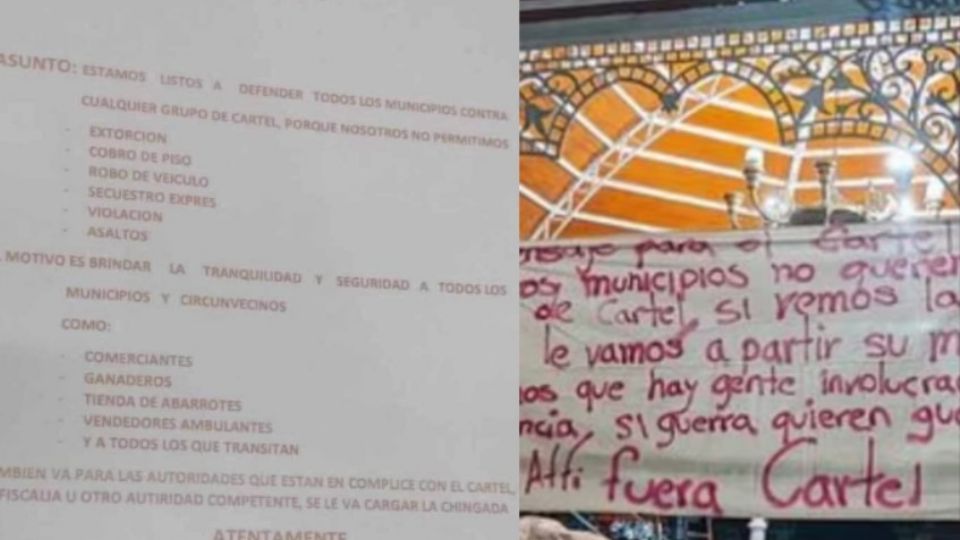 ASUNTO: ESTAMOS LISTOS A DEFENDER TODOS LOS MUNICIPIOS CONTRA
CUALQUIER GRUPO DE CARTEL, PORQUE NOSOTROS NO PERMITIMOS
- EXTORCION
- COBRO DE PISO
- ROBO DE VEICULO
- SECUESTRO EXPRES
- VIOLACION
- ASALTOS
MOTIVO ES BRINDAR LA TRANQUILIDAD Y SEGURIDAD A TODOS LOS
MUNICIPIOS Y CIRCUNVECINOS
COMO:
- COMERCIANTES
- GANADEROS
- TIENDA DE ABARROTES
- VENDEDORES AMBULANTES
- Y A TODOS LOS QUE TRANSITAN
MBIEN VA PARA LAS AUTORIDADES QUE ESTAN EN COMPLICE CON EL CARTEL,
FISCALIA U OTRO AUTIRIDAD COMPETENTE, SE LE VA CARGAR LA CHINGADA
ATENTAMENTE
ensaje para el Cartel
os municipios no queren
de Cartel, si vemos la
le vamos a partir su m
os que hay gente involucra
ncia, si guerra quieren gue
Att: fuera Cartel